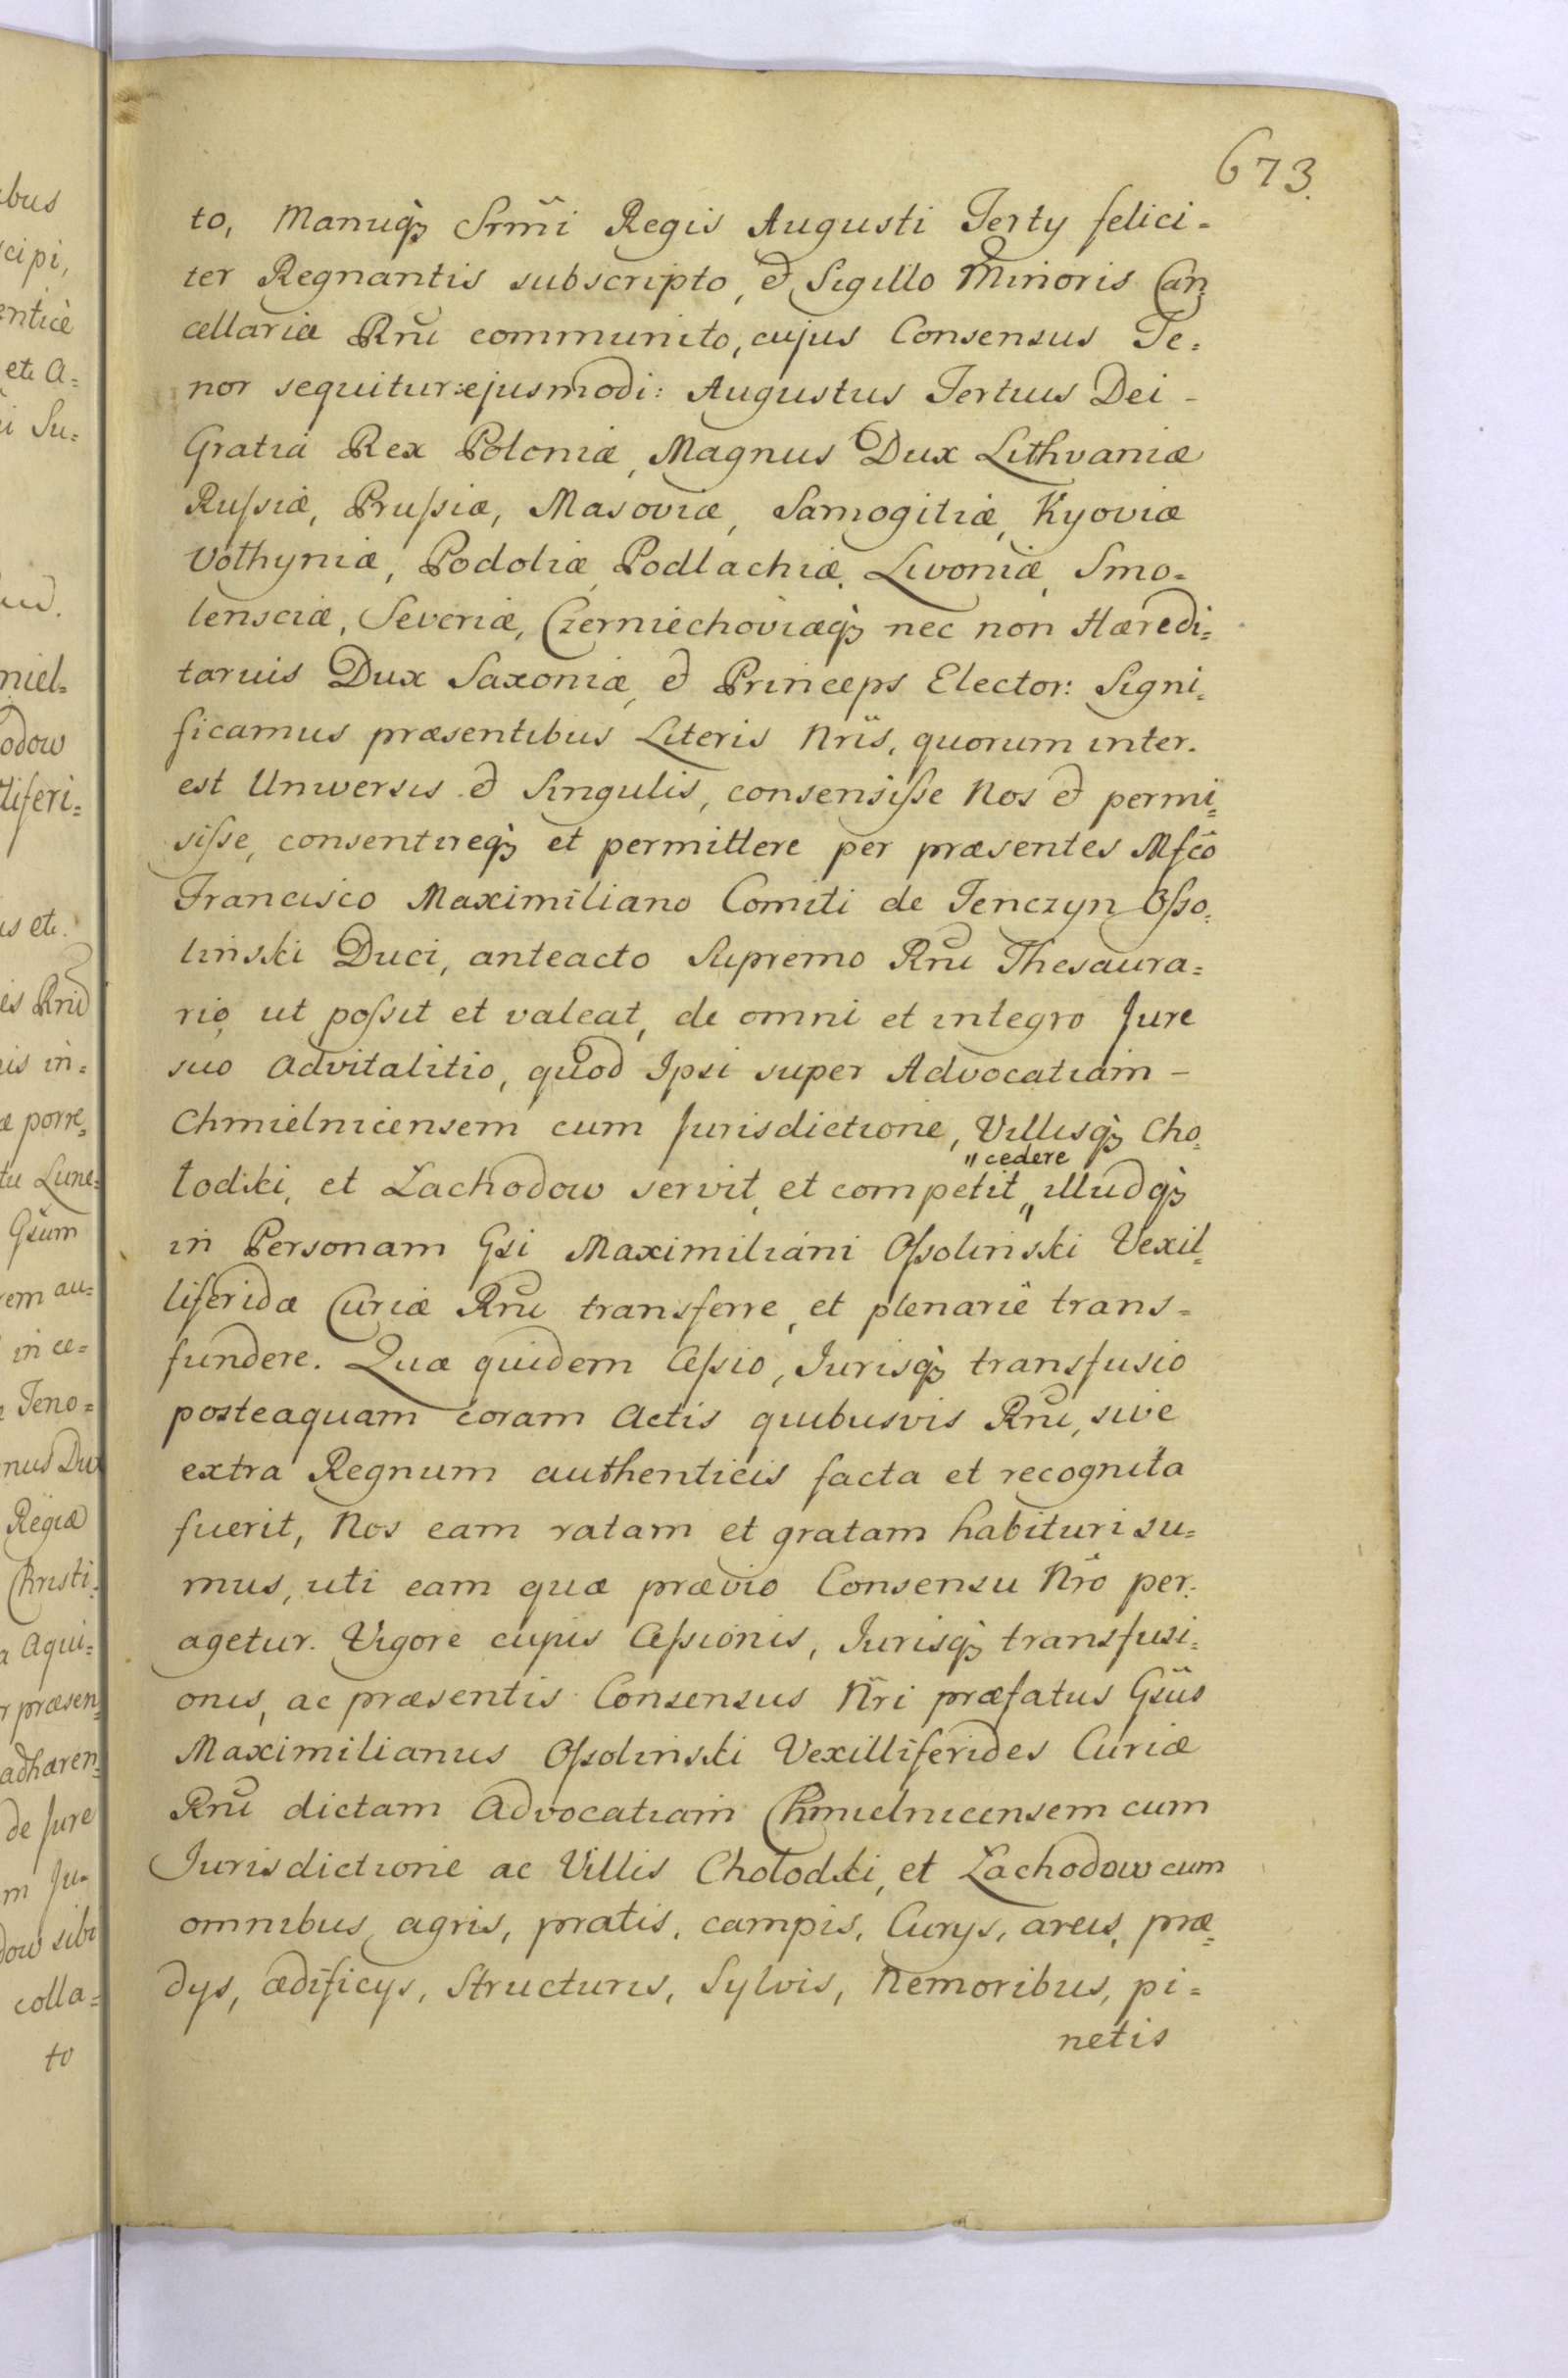 673.
to, Manuq3 Srm̃i Regis Augusti Terty felici-
ter Regnantis subscripto, et Sigillo Minoris Can-
cellariæ Rñi communito, cujus Consensus Te=
nor sequitur ejusmodi: Augustus Tertius Dei -
Gratia Rex Poloniæ, Magnus Dux Lithvaniæ
Russiæ, Prussiæ, Masoviæ, Samogitiæ, Kyoviæ
Vołhyniæ, Podoliæ, Podlachiæ, Livoniæ, Smo=
lensciæ, Severiæ, Czerniechoviæq3 nec non Hæredi=
tarius Dux Saxoniæ, et Princeps Elector: Signi=
ficamus præsentibus Literis Nr̃is, quorum inter-
est Universis et Singulis, consensisse Nos et permi=
sisse, consentireq3 et permittere per præsentes Mfc̃o
Francisco Maximiliano Comiti de Tenczyn Osso=
linski Duci, anteacto Supremo Rñi Thesaura=
rio, ut possit et valeat, de omni et integro Jure
suo Advitalitio, quod Ipsi super Advocatiam -
Chmielnicensem cum Jurisdictione, Villisq3 Cho=
" cedere
łodki, et Lachodow servit, et competit " illudq3
in Personam Gsi Maximiliani Ossolinski Vexil=
liferidæ Curiæ Rñi transferre, et plenariè trans=
fundere. Quæ quidem Cessio, Jurisq3 transfusio
posteaquam coram Actis quibusvis Rñi, sive
extra Regnum authenticis facta et recognita
fuerit, Nos eam ratam et gratam habituri su=
mus, uti eam quæ prævio Consensu Nr̃o per-
agetur. Vigore cujus Cessionis, Jurisq3 transfusi=
onis, ac præsentis Consensus Nr̃i præfatus Gsus
Maximilianus Ossolinski Vexilliferides Curiæ
Rñi dictam Advocatiam Chmielnicensem cum
Jurisdictione ac Villis Chołodki, et Lachodow cum
omnibus agris, pratis, campis, Curys, areis, præ=
dys, ædificys, Structuris, Sylvis, Nemoribus, pi=
netis